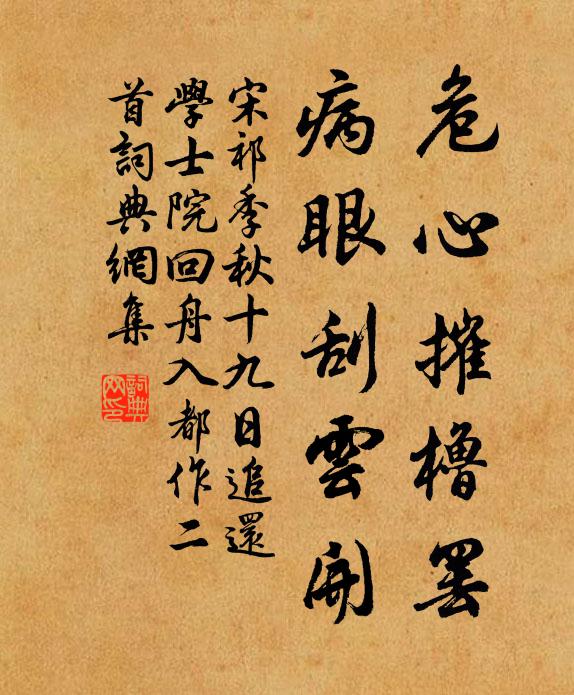 危心摧櫓罢
病眼刮雲開
宋祁季秋十九日追還
學士院回舟入都作二
首詞典網集
詞典
网印